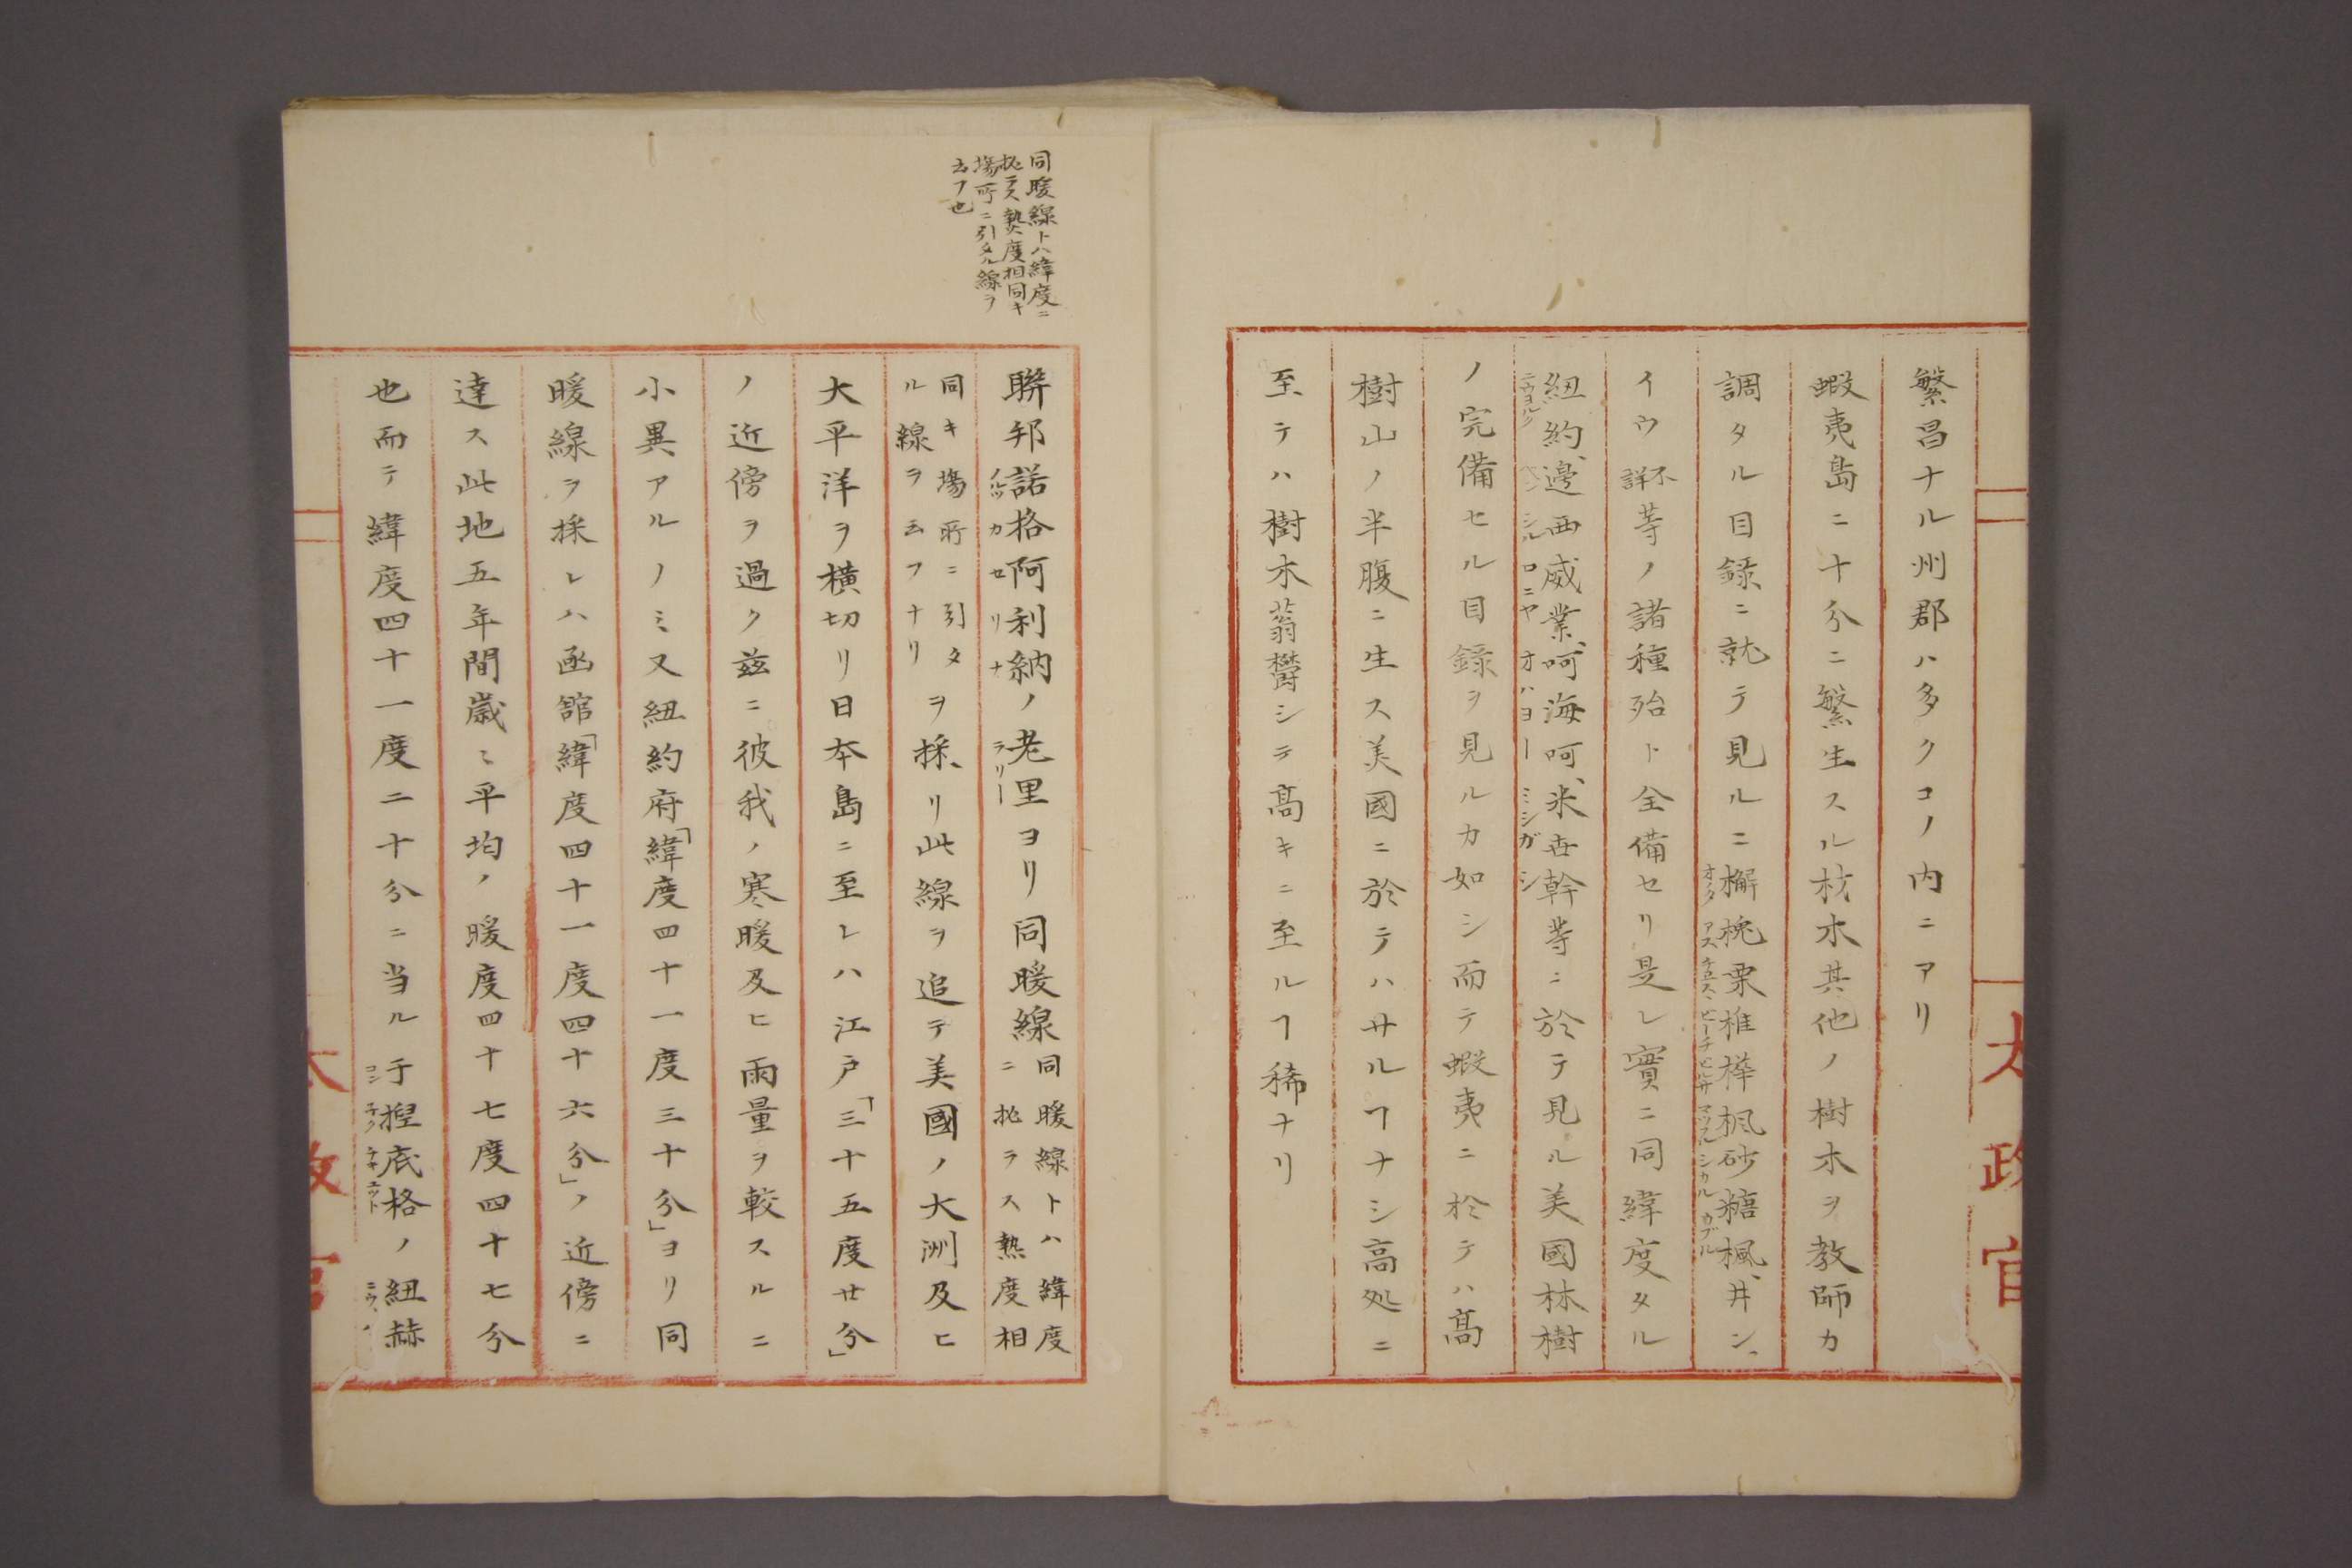 繁昌ナル州郡ハ多クコノ内ニアリ
蝦夷島ニ十分ニ繁生スル材木其他ノ樹木ヲ教師カ
調タル目録ニ就テ見ルニ檞槐栗椎樺楓砂糖楓、井ン、
オーク アス チエスト ビーチ ビルサ マツプル シカル カブル
イウ不詳等ノ諸種殆ト全備セリ是レ實ニ同緯度タル
紐約、邊西威業、呵海呵、米世幹等ニ於テ見ル美國林樹
ニウヨルク ペンシルロニヤ オハヨー ミシガン
ノ完備セル目録ヲ見ルカ如シ而テ蝦夷ニ於テハ高
樹山ノ半腹ニ生ス美國ニ於テハサルヿナシ高処ニ
至テハ樹木蓊欝シテ高キニ至ルヿ稀ナリ
太政官
同暖線トハ緯度ニ
拠ラス熱度相同キ
場所ニ引タル線ヲ
云フ也
聨邦諾格阿利納ノ老里ヨリ同暖線同暖線トハ緯度ニ拠ラス熱度相
ノルツ カ セ リ ナ ラリー
同キ場所ニ引タル線ヲ云フナリヲ採リ此線ヲ追テ美國ノ大洲及ヒ
大平洋ヲ横切リ日本島ニ至レハ江戸「三十五度廿分」
ノ近傍ヲ過ク茲ニ彼我ノ寒暖及ヒ雨量ヲ較スルニ
小異アルノミ又紐約府「緯度四十一度三十分」ヨリ同
暖線ヲ採レハ函舘「緯度四十一度四十六分」ノ近傍ニ
達ス此地五年間歳ミ平均ノ暖度四十七度四十七分
也而テ緯度四十一度二十分ニ当ル于捏底格ノ紐赫
コン チク チキエット ニウ、
太政官